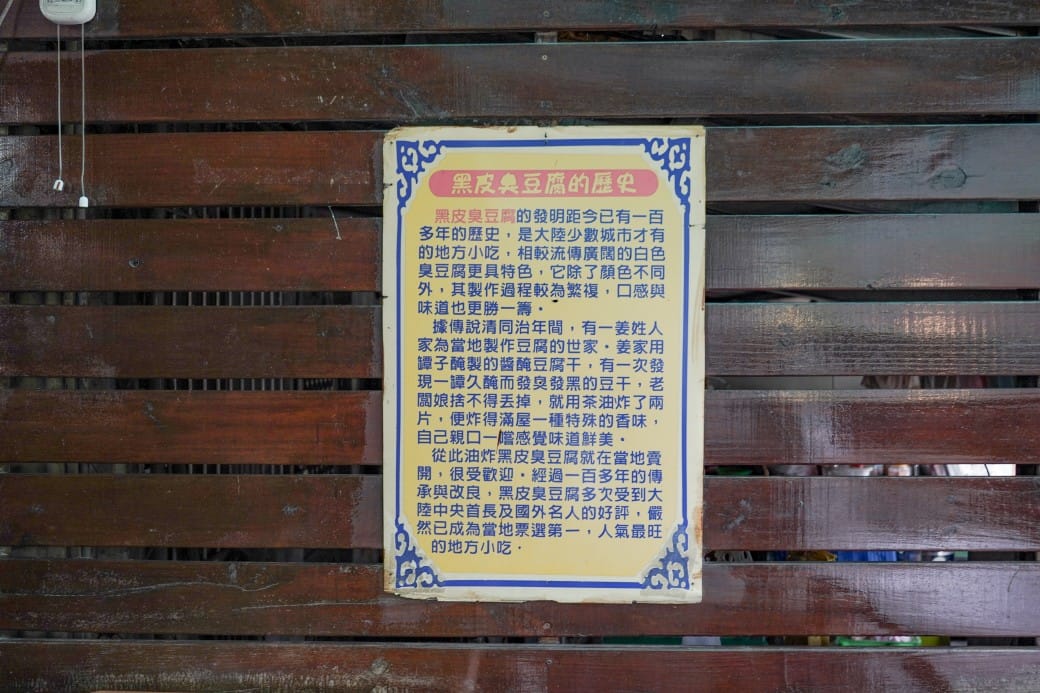 黑皮臭豆腐的歷史
黑皮臭豆腐的發明距今已有一百
多年的歷史，是大陸少數城市才有
的地方小吃，相較流傳廣闊的白色
臭豆腐更具特色，它除了顏色不同
外，其製作過程較為繁複，口感與
味道也更勝一籌。
據傳說清同治年間，有一姜姓人
家為當地製作豆腐的世家。姜家用
罈子醃製的醬醃豆腐干，有一次發
現一罈久醃而發臭發黑的豆干，老
闆娘捨不得丟掉，就用茶油炸了兩
片，便炸得滿屋一種特殊的香味，
自己親口一嚐感覺味道鮮美。
從此油炸黑皮臭豆腐就在當地賣
開，很受歡迎。經過一百多年的傳
承與改良，黑皮臭豆腐多次受到大
陸中央首長及國外名人的好評，儼
然已成為當地票選第一，人氣最旺
的地方小吃．